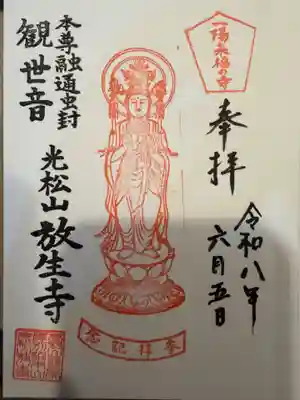 一陽来福の寺
奉拝
令和八年
六月五日
参拝記念
本尊融通虫封
観世音
光松山放生寺